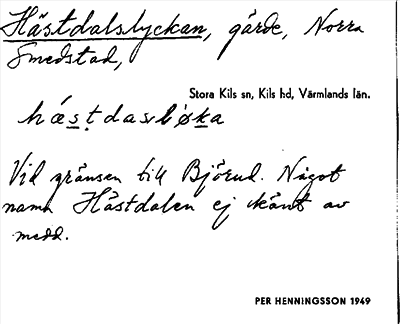 Hästdalslyckan, gärde, Norra
Smedstad,
Stora Kils sn, Kils hd, Värmlands län.
Vid gränsen till Björud. Något
namn Hästdalen ej känt av
medd.
PER HENNINGSSON 1949